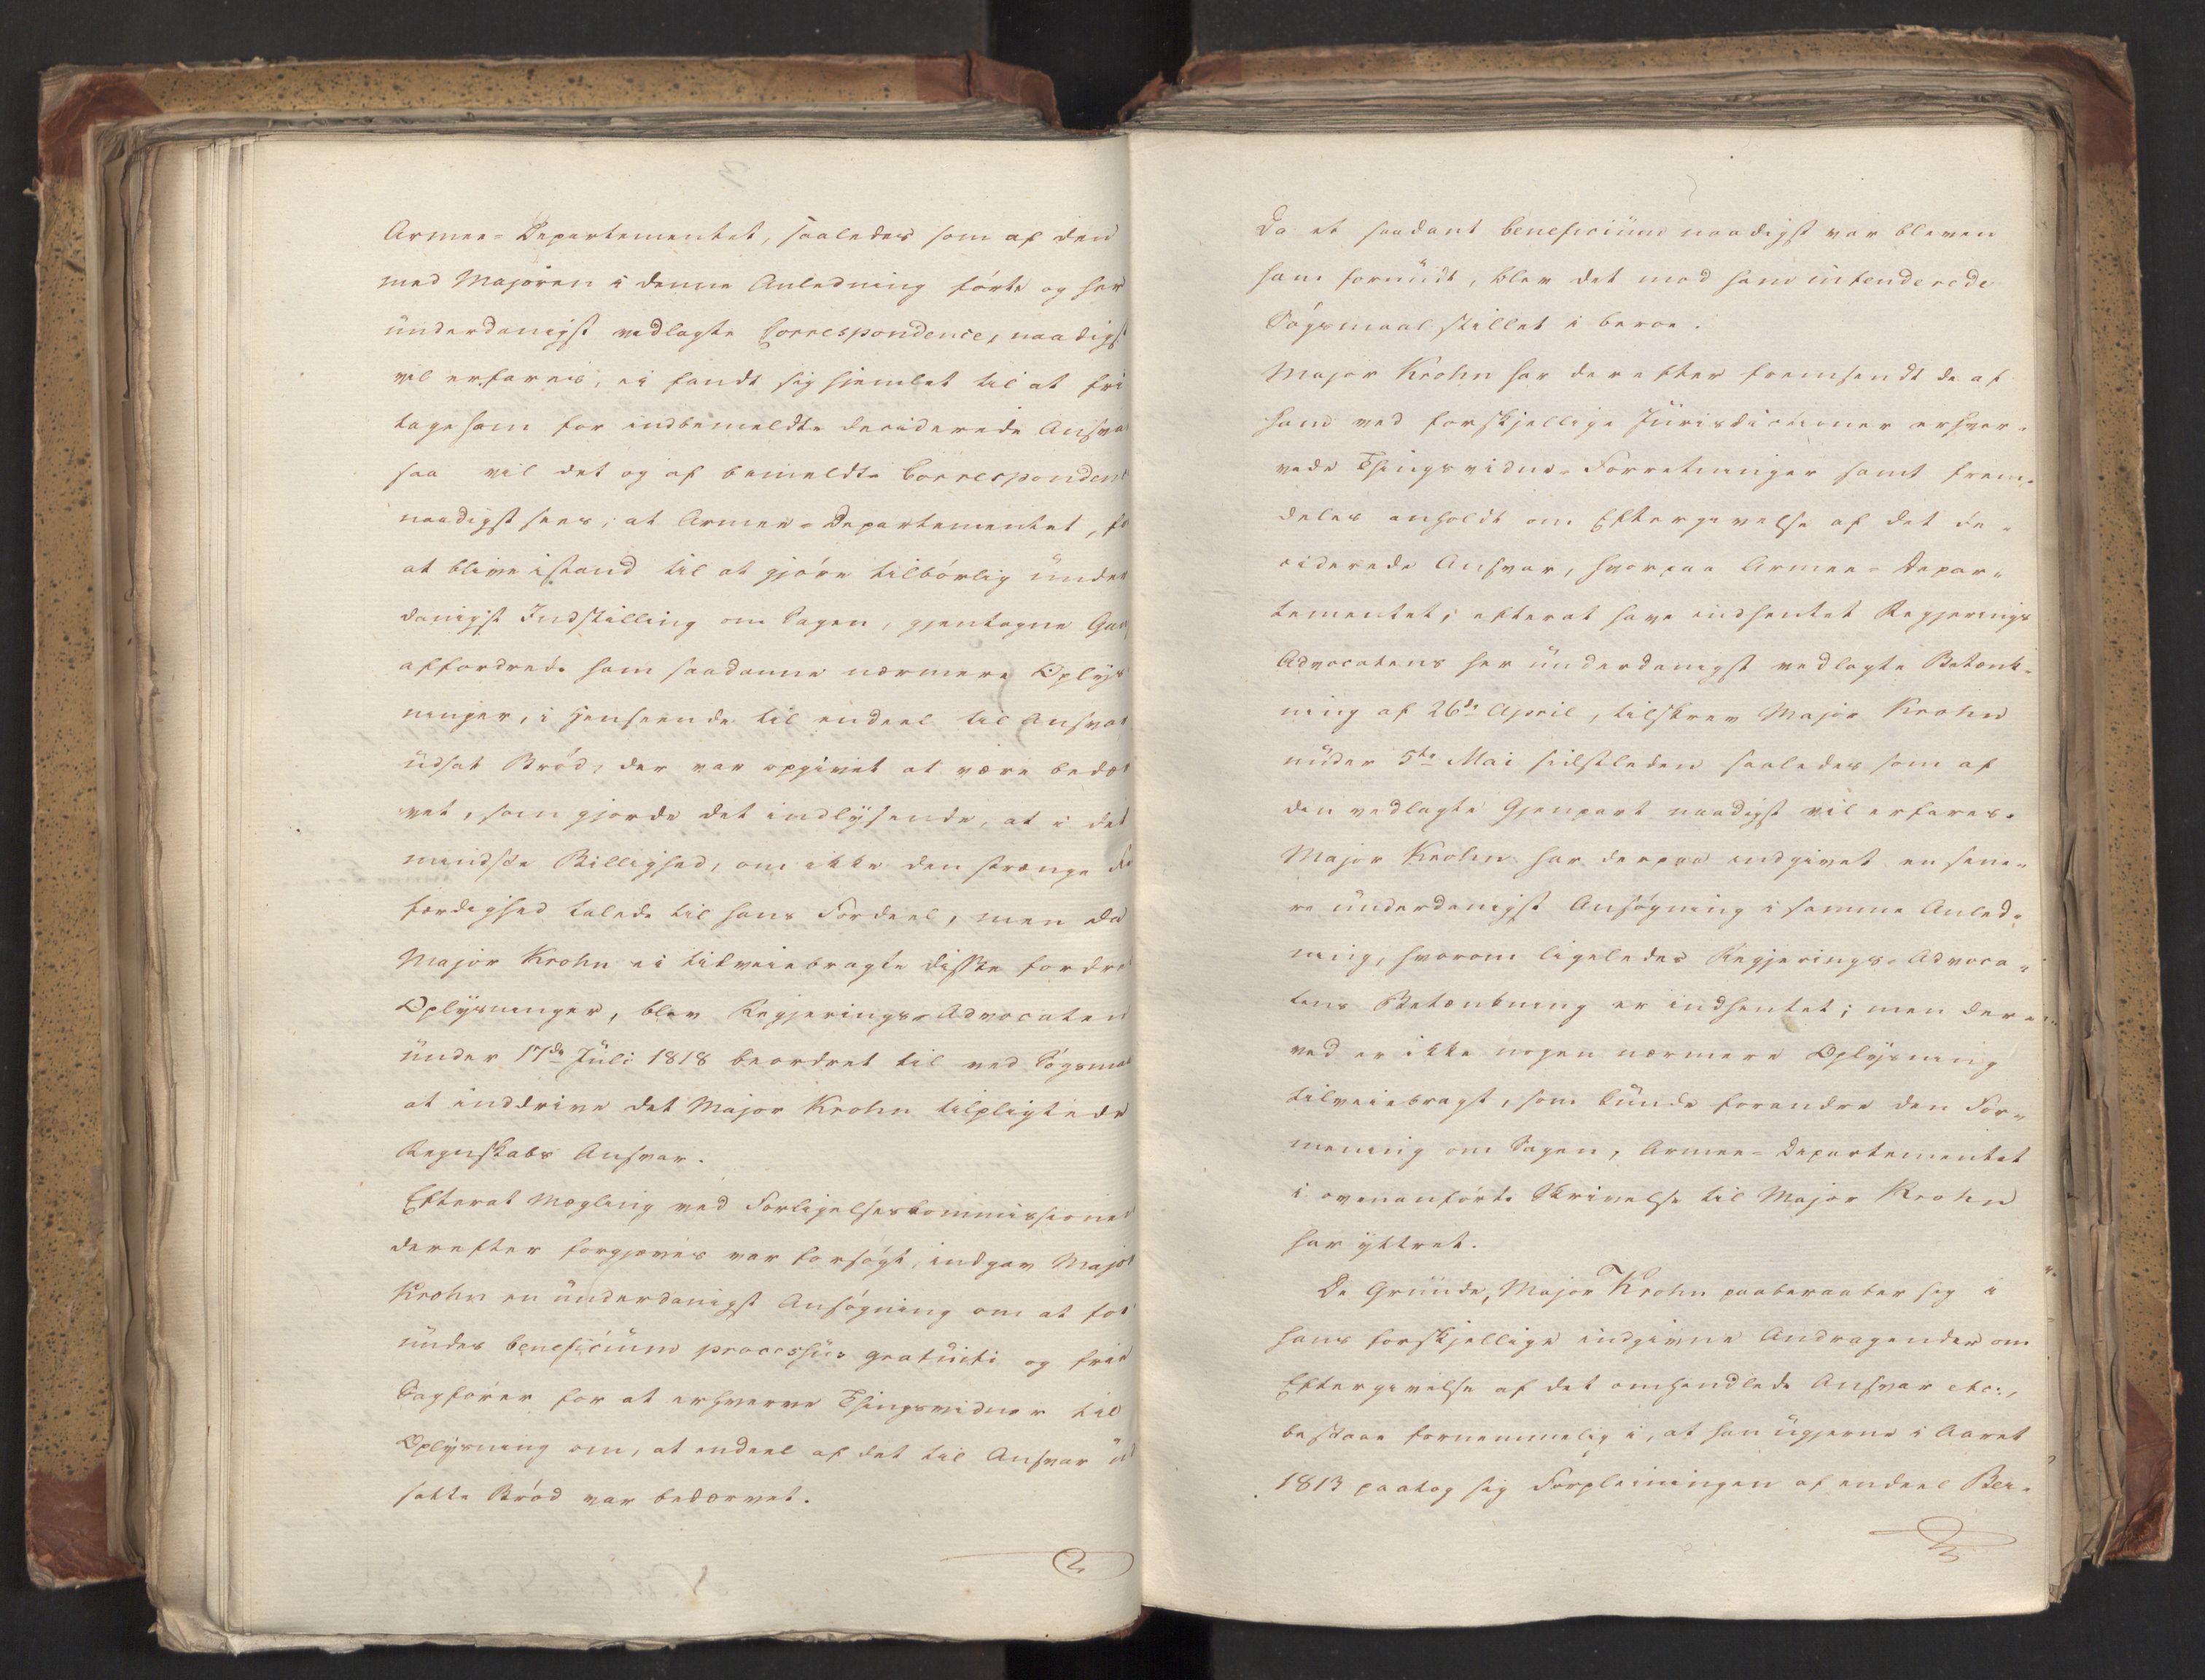 Armee-Departementet, saaledes som af den
med Majoren i denne Anledning førte og her
underdanigst vedlagte Correspondence, naadigst
vil erfares, ei fandt sig hjemlet til at fri
tage ham for indbemeldte deciderede Ansva
saa vil det og af bemeldte Correspondenc
naadigst sees, at Armee-Departementet, fo
at blive istand til at gjøre tilbørlig under
danigst Indstilling om Sagen, gjentagne Gan
affordrede ham saadanne nærmere Oplys
ninger, i Henseende til endeel til Ansvar
udsat Brød, der var opgivet at være bedær
vet, som gjorde det indlysende, at i det
mindste Billighed, om ikke den strænge Re
færdighed talede til hans Fordeel, men da
Major Krohn ei tilveiebragte disse fordre
Oplysninger, blev Regjerings-Advocaten
under 17de Juli 1818 beordret til ved Søgsmaa
at inddrive det Major Krohn tilpligtede
Regnskabs Ansvar.
Efterat Mægling ved Forligelseskommissionen
derefter forgjæves var forsøgt, indgav Major
Krohn en underdanigst Ansøgning om at for
undes beneficium processus gratuiti og frie
Sagfører for at erhverve Thingsvidner til
Oplysning om, at endeel af det til Ansvar ud
satte Brød var bedærvet.
Da et saadant beneficium naadigst var bleven
ham forundt, blev det mod ham intenderede
Søgsmaal stillet i beroe.
Major Krohn har derefter fremsendt de af
ham ved forskjellige Jurisdictioner erhver-
vede Thingsvidne-Forretninger samt frem-
deles anholdt om Eftergivelse af det de-
ciderede Ansvar, hvorpaa Armee-Depar-
tementet, efterat have indhentet Regjerings
Advocatens her underdanigst vedlagte Betænk-
ning af 26de April, tilskrev Major Krohn
under 5te Mai sidstleden saaledes som af
den vedlagte Gjenpart naadigst vil erfares.
Major Krohn har derpaa indgivet en sene-
re underdanigst Ansøgning i samme Anled-
ning, hvorom ligeledes Regjerings-Advoca-
tens Betænkning er indhentet; men der-
ved er ikke nogen nærmere Oplysning
tilveiebragt, som kunde forandre den For-
mening om Sagen, Armee-Departementet
i ovenanførte Skrivelse til Major Krohn
har yttret.
De Grunde, Major Krohn paaberaaber sig i
hans forskjellige indgivne Andragender om
Eftergivelse af det omhandlede Ansvar etc.,
bestaae fornemmelig i, at han ugjerne i Aaret
1813 paatog sig Forpleiningen af endeel Ber-